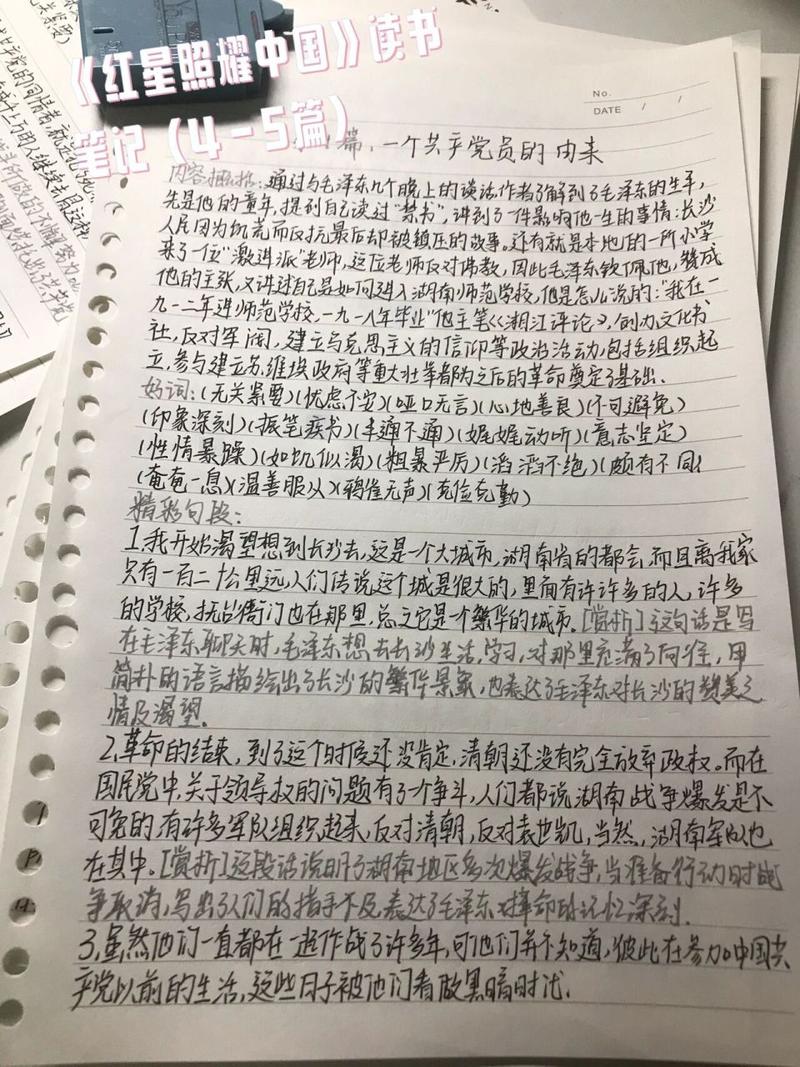 《红星照耀中国》读书
笔记（4-5篇）
No.
DATE / /
篇，一个共产党员的由来
内容概括：通过与毛泽东几个晚上的谈话,作者了解到了毛泽东的生平，
先是他的童年，提到自己读过“禁书”，讲到了一件影响他一生的事情：长沙
人民因为饥荒而反抗最后却被镇压的故事。还有就是本地的一所小学
来了一位“激进派”老师，这位老师反对佛教，因此毛泽东钦佩他，赞成
他的主张，又讲过自己是如何进入湖南师范学校，他是怎么说的：“我在一
九一二年进师范学校，一九一八年毕业”他主笔《湘江评论》，创办文化书
社，反对军阀，建立马克思主义的信仰等政治活动，包括组织起
立，参与建立苏维埃政府等重大壮举都为之后的革命奠定了基础.
好词：(无关紧要)(忧虑不安)(哑口无言)(心地善良)(不可避免)
(印象深刻)(振笔疾书)(半通不通)(娓娓动听)(意志坚定)
(性情暴躁)(如饥似渴)(粗暴严厉)(滔滔不绝)(颇有不同)
(奄奄一息)(温善服从)(鸦雀无声)(克俭克勤)
精彩句段：
1.我开始渴望想到长沙去，这是一个大城市，湖南省的都会，而且离我家
只有一百二十公里远，人们传说这个城是很大的，里面有许许多多的人，许多
的学校，抚台衙门也在那里，总之它是个繁华的城市。[赏析]这句话是写
在毛泽东聊天时，毛泽东想去长沙生活，学习，对那里充满了向往，用
简朴的语言描绘出了长沙的繁华景象，也表达了毛泽东对长沙的赞美之
情及渴望.
2.革命的结束，到了这个时候还没肯定，清朝还没有完全放弃政权。而在
国民党中，关于领导权的问题有了个争斗，人们都说湖南战争爆发是不
可免的，有许多军队组织起来，反对清朝，反对袁世凯，当然，湖南军队也
在其中。[赏析]这段话说明了湖南地区多次爆发战争，当准备行动时战
争取消，写出了人们的措手不及，表达了毛泽东对革命的记忆深刻.
3.虽然他们一直都在一起作战了许多年，可他们并不知道，彼此在参加中国共
产党以前的生活，这些日子被他们看做黑暗时代.